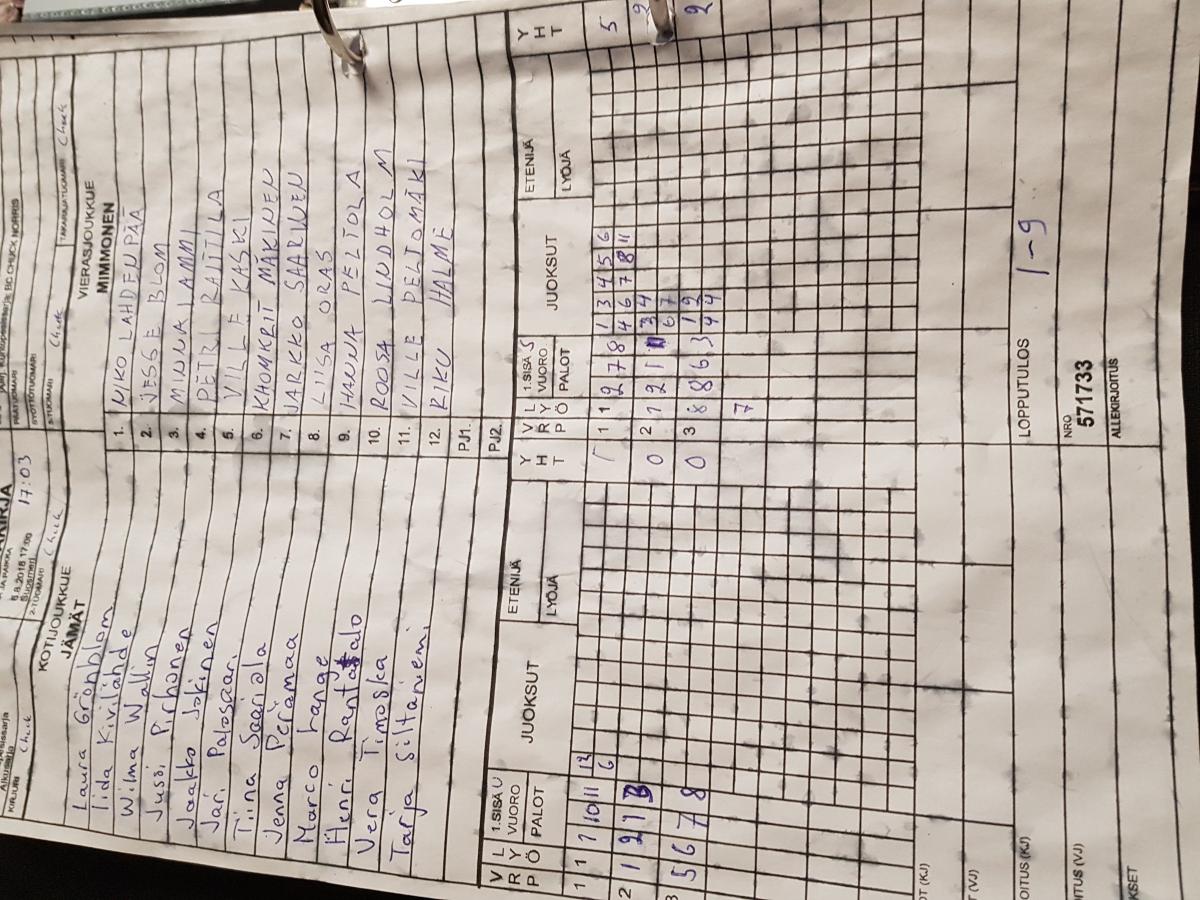 KIRJURI Check
2-TUOMARI Check
17:03
6.8.2018 17:00
Suosmeri
BC CHUCK NORRIS
SYÖTTÖTUOMARI
Check
TAKARAJATUOMARI Check
KOTIJOUKKUE
JÄMÄT
VIERASJOUKKUE
MIMMONEN
Laura Grönblom
1. NIKO LAHDENPÄÄ
Iida Kivilähde
2. JESSE BLOM
Wilma Wallin
3. MINNA LAMMI
Jussi Pirhonen
4. PETRI RAITTILA
Jaakko Jokinen
5. VILLE KASKI
Jari Palosaari
6. KHOMKRIT MÄKINEN
Tiina Saariala
7. JARKKO SAARINEN
Jenna Perämaa
8. LIISA ORAS
Marco Lange
9. HANNA PELTOLA
Henri Rantatalo
10. ROOSA LINDHOLM
Vera Timoska
11. VILLE PELTOMÄKI
Tarja Siltaniemi
12. RIKU HALME
PJ1.
PJ2.
VRP LYÖ 1.SISÄ U VUORO PALOT JUOKSUT ETENIJÄ LYÖJÄ YHT
VRP LYÖ 1.SISÄ S VUORO PALOT JUOKSUT ETENIJÄ LYÖJÄ YHT
1 1 7 10 11 12 1
6
1 1 2 7 8 1 3 4 5 6 5
4 6 7 8 11
2 1 2 1 3 0
2 1 2 1 3 4 2
6 7
3 5 6 7 8 0
3 8 8 6 3 1 2 2
4 4
7
LOPPUTULOS 1-9
NRO
571733
ALLEKIRJOITUS